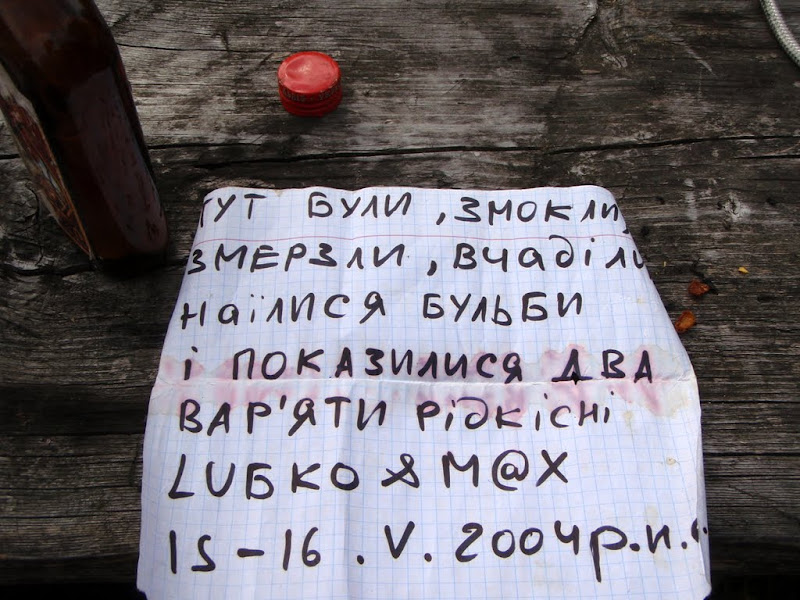 ТУТ БУЛИ, ЗМОКЛИ,
ЗМЕРЗЛИ, ВЧАДІЛИ
НАЇЛИСЯ БУЛЬБИ
І ПОКАЗИЛИСЯ ДВА
ВАР'ЯТИ РІДКІСНІ
LUБКО & M@X
15-16.V.2004р.н.е.